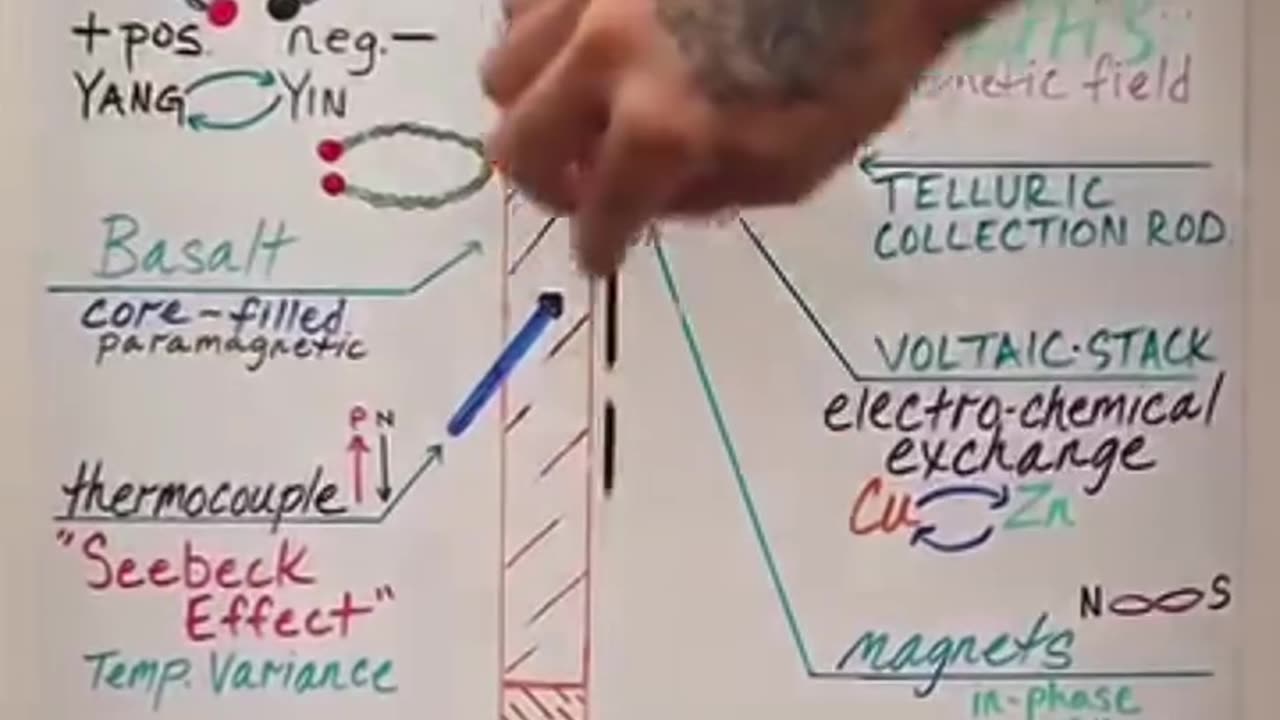 +pos. neg.-
YANG YIN
Basalt
core-filled
paramagnetic
P N
thermocouple
"Seebeck
Effect"
Temp. Variance
field
TELLURIC
COLLECTION ROD
VOLTAIC·STACK
electro-chemical
exchange
Cu Zn
N S
magnets
in-phase